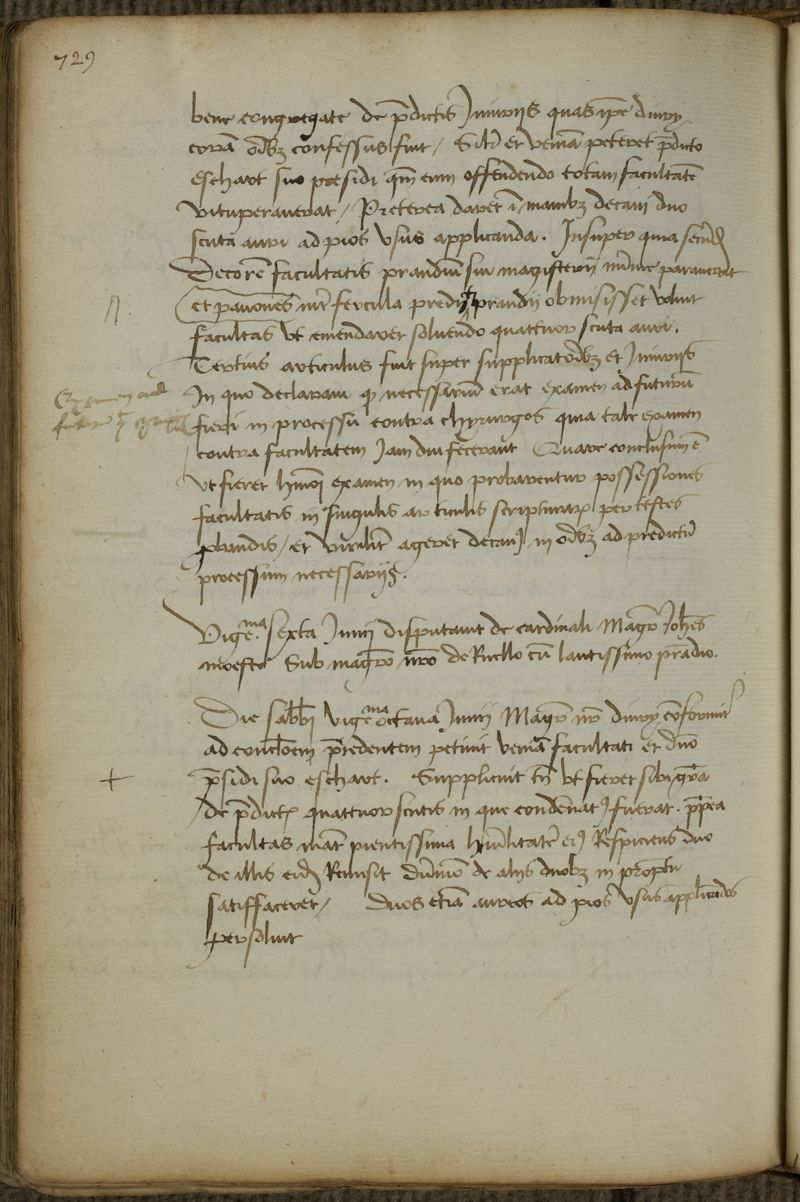 729
bene congregate de p̄dictis Iniuriis quas ip̄e divry
corā om̄ibꝫ confessus fuit / Silr̄ et veniā peteret p̄dicto
eschart suo presidi qm̄ eum offendendo totam facultatē
vituperaverat / Preterea daret ī manibꝫ decani duo
scuta auri ad pios usus applicanda . Insuper quia
Decorē facultatis prandiū sui magisterii paraverat
et pavones int̄ fercula predicti prandii obmisisset voluit
facultas ut emendaret solvendo quattuor scuta auri .
Tertius articulus fuit super supplicatōibꝫ et Iniuriis
In quo declaravi ꝙ necessariū erat examen ad futurū
Examen ad
fieri in processu contra chyrurgos quia tale examen
contra facultatem Iam diu fecerant Quare conclusum ē
ut fieret hmōi examen in quo probarentur possessiones
facultatis in singulis articulis scripturarꝫ per testes
ꝓbandis / et virilit̄ ageret decanꝰ in om̄ibꝫ ad predictū
processum necessariis .
Vigema. sexta Iunii disputavit de cardinali Magr̄ Ioh̄es
moesto Sub magr̄o nr̄o de Ruello cū lautissimo prādio.
Die sabb̄i vigema octava Iunii Magr̄ nr̄ divry cōformit̄
ad conclōem p̄cedentem petivit veniā facultati et dn̄o
+ p̄sidi suo eschart . Supplicuit tn̄ ut fieret sibi gr̄a
de p̄dictis quattuor scutis in que condēnatꝰ fuerat . p̄p̄ea
facultas mat̄ pientissima hūilitatē eiꝰ Respiciens duo
de illis eidē Remisit dūmō de aliis duobꝫ in prōptu
satisfaceret / Duos etiā aureos ad pios usus applicādos
persolvit